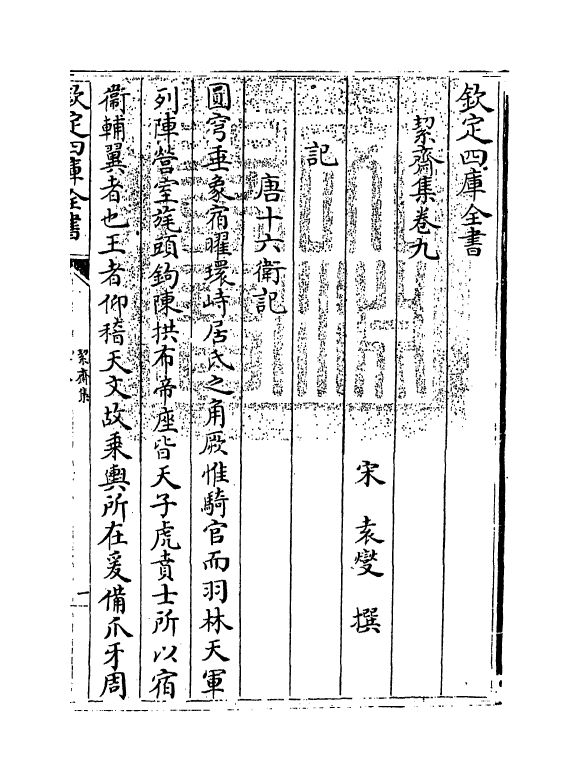 欽定四庫全書
絜齋集卷九
宋 袁燮 撰
記
唐十六衛記
圓穹垂象宿曜環峙居氐之角厥惟騎官而羽林天軍
列陣營室旄頭鉤陳拱布帝座皆天子虎賁士所以宿
衛輔翼者也王者仰稽天文故乗輿所在爰備爪牙周
欽定四庫全書
絜齋集
一